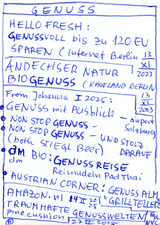 GENUSS
HELLO FRESH:
GENUSSVOLL bis zu 120 EU
SPAREN (Internet Berlin 13
XI
2023
ANDECHSER NATUR
BIOGENUSS (KAUFLAND BERLIN
13
XI
2023
From Johanna I 2025:
GENUSS mit Ausblick
airport
Salzburg
NON STOP GENUSS -
NON STOP GENUSS - UND STOLZ
DARAUF
(both Stiegl Beer)
dm BIO: GENUSSREISE
Reisnudeln Pad Thai
AUSTRIAN CORNER: GENUSS ALM
GRILLTELLER
AMAZON.
TRAUMHAFTE GENUSSWELTEN
pine cushion